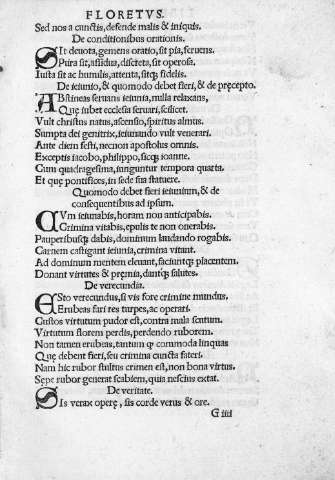 FLORETVS.
Sed nos a cunctis, defende malis & iniquis.
De conditionibus orationis.
SIt deuota, gemens oratio, sit pia, feruens.
Pura sit, assidua, discreta, sit operosa.
Iusta sit ac humilis, attenta, sitq; fidelis.
De ieiunio, & quomodo debet fieri, & de pręcepto.
ABstineas seruans ieiunia, nulla relaxans,
Quę iubet ecclesia seruari, scilicet.
Vult christus natus, ascensio, spiritus almus.
Sumpta dei genitrix, ieiunando vult venerari.
Ante diem festi, necnon apostolus omnis.
Exceptis iacobo, philippo, sicq; ioanne.
Cum quadragesima, iunguntur tempora quarta.
Et que pontifices, in sede sua statuere.
Quomodo debet fieri ieiunium, & de
consequentibus ad ipsum.
CVm ieiunabis, horam non anticipabis.
Crimina vitabis, epulis te non onerabis.
Pauperibusq; dabis, dominum laudando rogabis.
Carnem castigant ieiunia, crimina vitant.
Ad dominum mentem eleuant, faciuntq; placentem.
Donant virtutes & pręmia, dantq; salutes.
De verecundia.
ESto verecundus, si vis fore crimine mundus.
Erubeas fari res turpes, ac operari.
Custos virtutum pudor est, contra mala scutum.
Virtutum florem perdis, perdendo ruborem.
Non tamen erubeas, tantum qꝫ commoda linquas
Quę debent fieri, seu crimina cuncta fateri.
Nam hic rubor stultus crimen est, non bona virtus.
Sępe rubor generat scabiem, quia nescius extat.
De veritate.
SIs verax operę, sis corde verus & ore.
G iiii